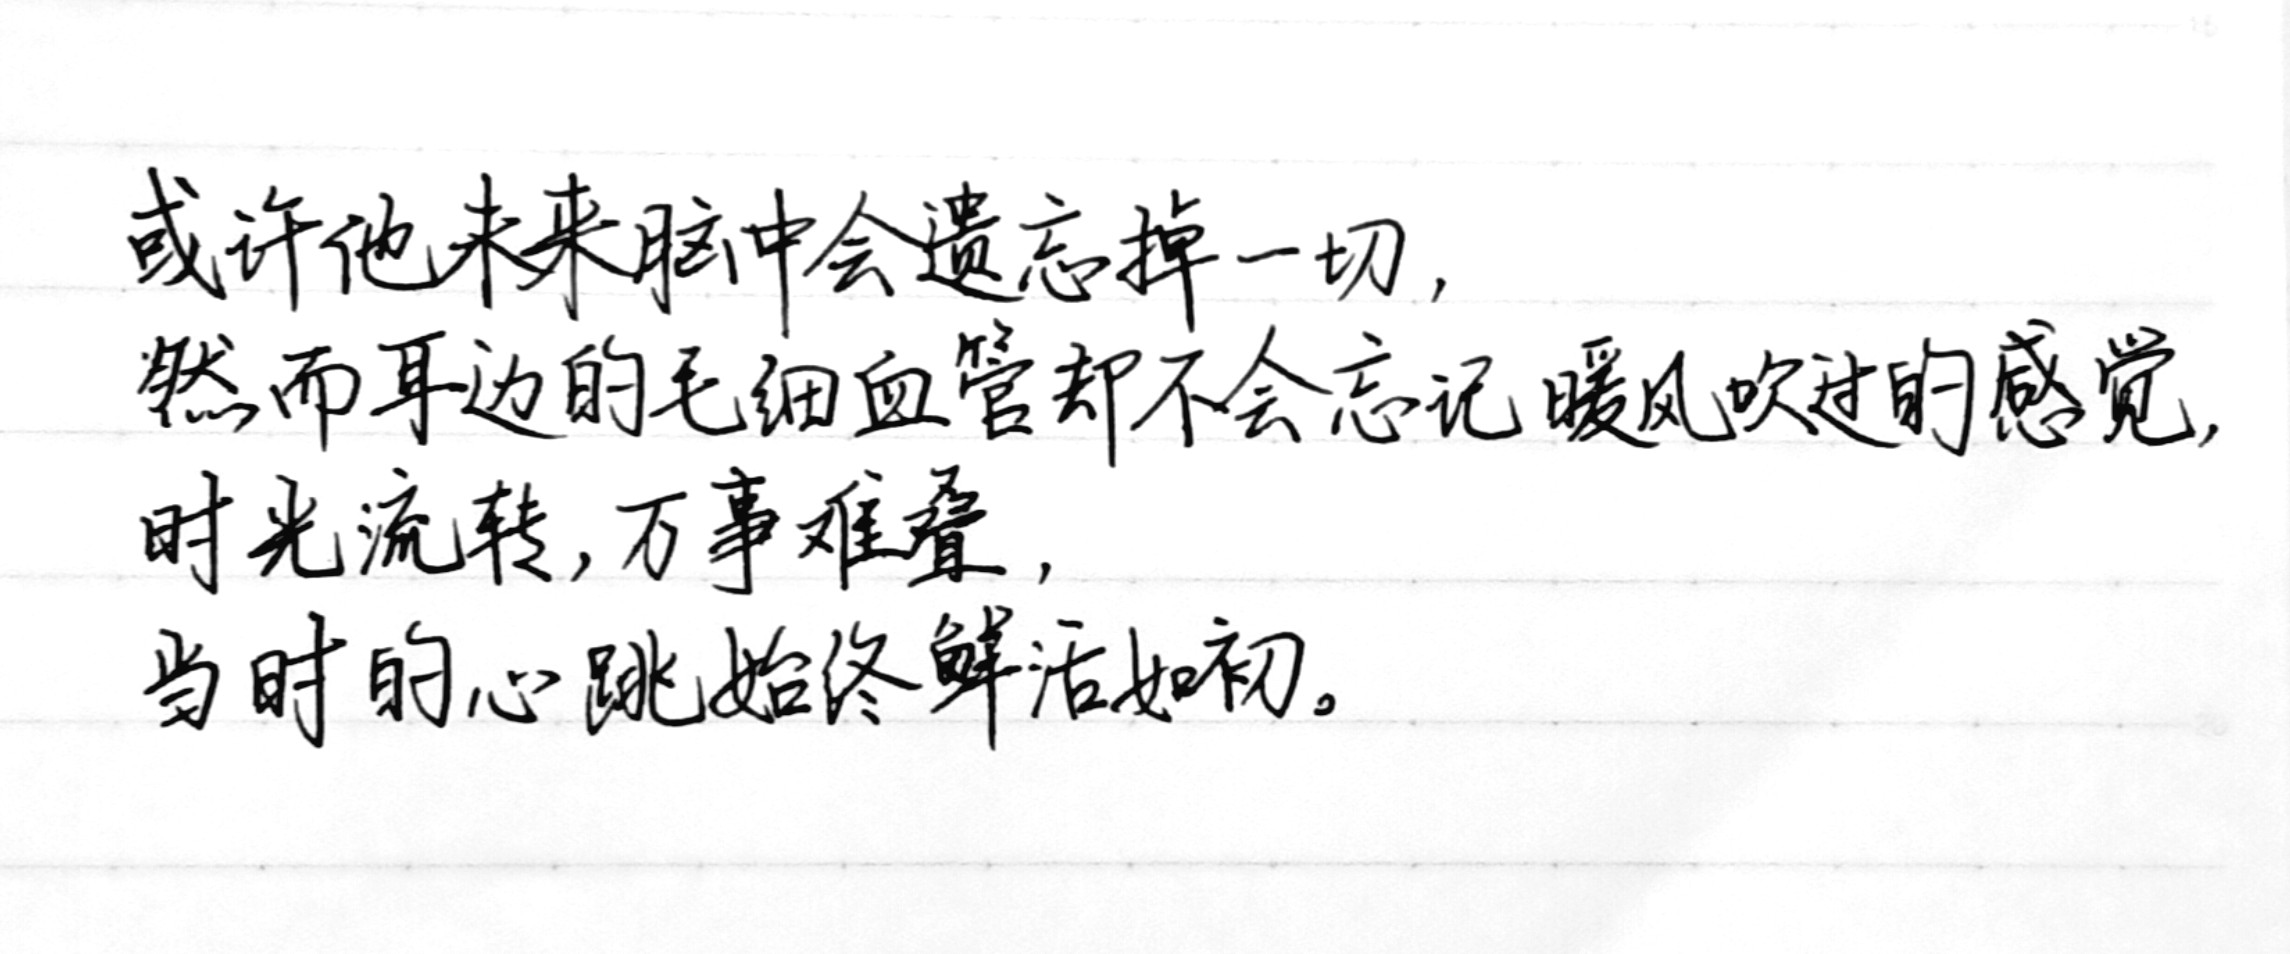 或许他未来脑中会遗忘掉一切，
然而耳边的毛细血管却不会忘记暖风吹过的感觉，
时光流转，万事难叠，
当时的心跳始终鲜活如初。